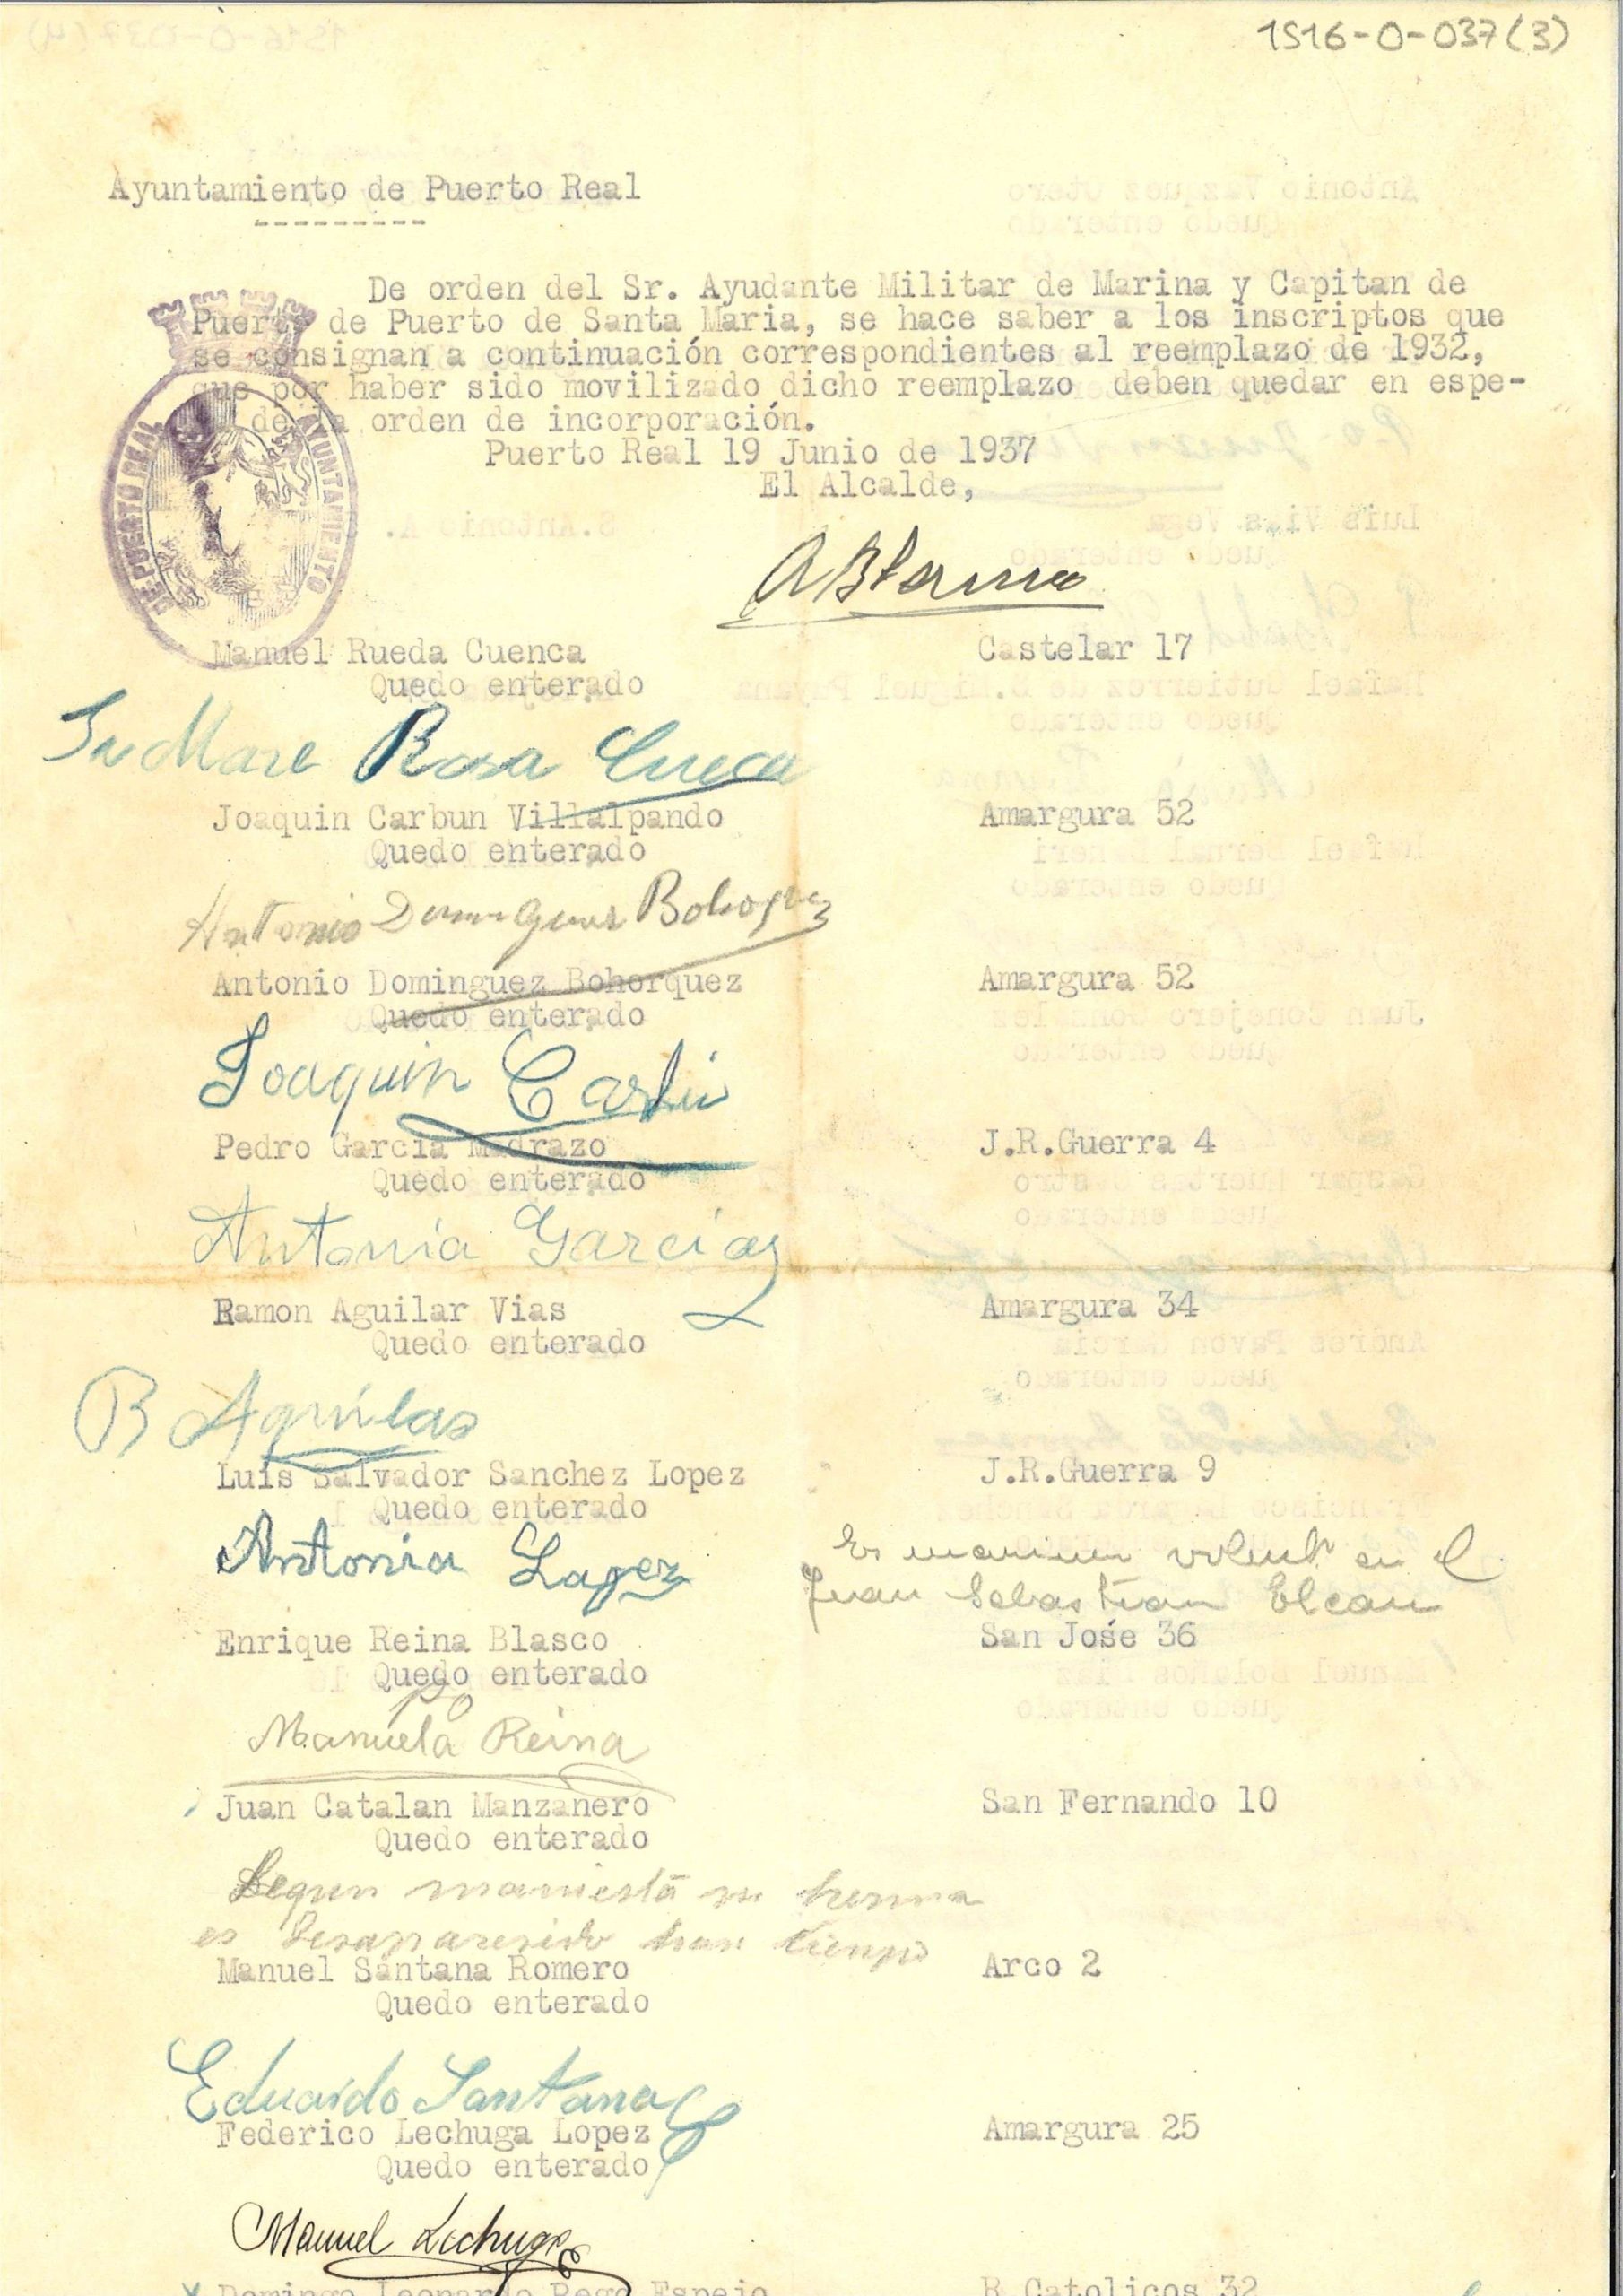 1S16-0-037(3)
Ayuntamiento de Puerto Real
---------
De orden del Sr. Ayudante Militar de Marina y Capitan de
Puerto de Puerto de Santa Maria, se hace saber a los inscriptos que
se consignan a continuación correspondientes al reemplazo de 1932,
que por haber sido movilizado dicho reemplazo deben quedar en espe-
de la orden de incorporación.
Puerto Real 19 Junio de 1937
El Alcalde,
AYUNTAMIENTO DE PUERTO REAL
Manuel Rueda Cuenca Castelar 17
Quedo enterado
Su Mare Rosa Cueca
Joaquin Carbun Villalpando Amargura 52
Quedo enterado
Antonio Dominguez
Antonio Dominguez Bohorquez Amargura 52
Quedo enterado
Joaquin
Pedro Garcia Madrazo J.R.Guerra 4
Quedo enterado
Antonia Garcia
Ramon Aguilar Vias Amargura 34
Quedo enterado
Luis Salvador Sanchez Lopez J.R.Guerra 9
Quedo enterado
Antonia Lopez
Es voluntº en el
Juan Sebastian Elcan
Enrique Reina Blasco San José 36
Quedo enterado
PO
Manuela Reina
Juan Catalan Manzanero San Fernando 10
Quedo enterado
Segun su
es tiempo
Manuel Santana Romero Arco 2
Quedo enterado
Eduardo Santana
Federico Lechuga Lopez Amargura 25
Quedo enterado
Manuel Lechuga
Domingo Leonardo Rego Espejo R.Catolicos 32